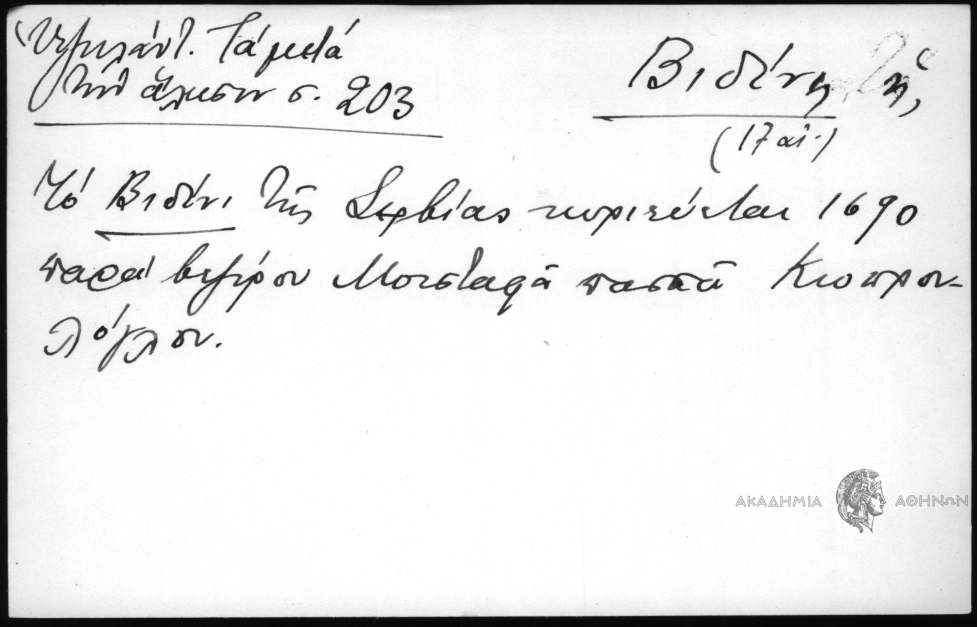 Ὑψηλάντ. Τά μετά
τήν ἅλωσιν σ. 203
Βιδύνη, ἡ,
(17 αἰ.)
Τό Βιδίνι τῆς Σερβίας κυριεύεται 1690
παρά βεζίρου Μουσταφᾶ πασσᾶ Κιοπρου-
λόγλου.
ΑΚΑΔΗΜΙΑ ΑΘΗΝΩΝ